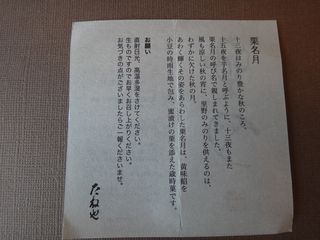 栗名月
十三夜はみのり豊かな秋のころ。
十五夜を芋名月と呼ぶように、十三夜もまた
栗名月の呼び名で親しまれてきました。
風も涼しい秋の宵に、里野のみのりを供えるのは、
わずかに欠けた秋の月。
あわく輝くその姿をあらわした栗名月は、黄味餡を
小豆の時雨生地で包み、蜜漬けの栗を添えた歳時菓です。
お願い
直射日光、高温多湿をさけてください。
生ものですのでお早くお召し上がりください。
お気づきの点がございましたらご一報くださいませ。
たねや